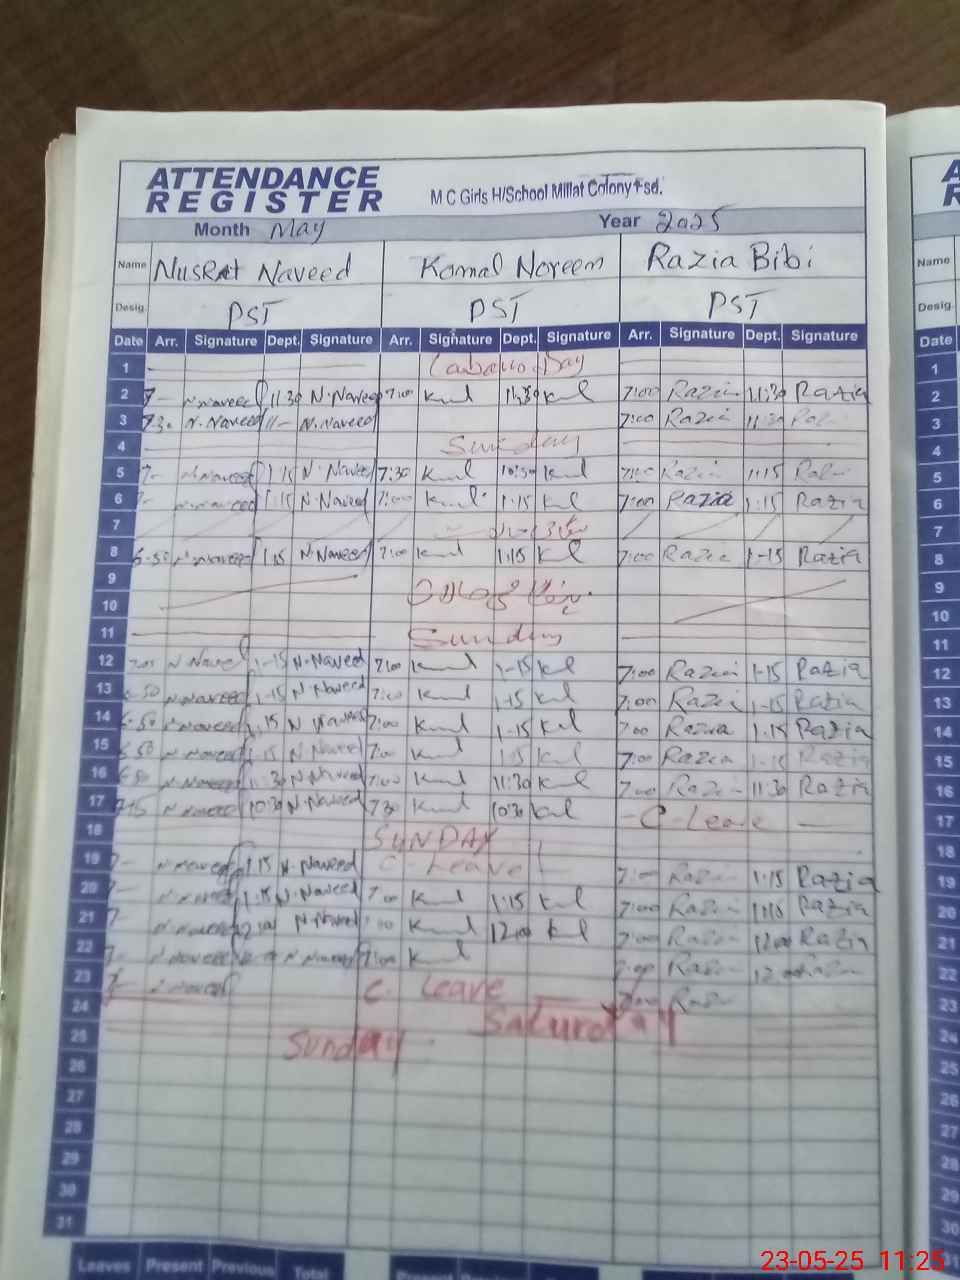 ATTENDANCE
REGISTER
M C Girls H/School Millat Colony Fsd.
Month May Year 2025
Name Nusrat Naveed Komal Noreem Razia Bibi
Desig. PST PST PST
Date Arr. Signature Dept. Signature Arr. Signature Dept. Signature Arr. Signature Dept. Signature
1 Day
2 7- N.Naveed 11:30 N.Naveed 7:00 11:30 7:00 Razia 11:30 Razia
3 7:30 N.Naveed 11- N.Naveed 7:00 Razia 11:30
4 Sunday
5 7- N.Naveed 1:15 N.Naveed 7:30 10:30 7:00 Razia 1:15
6 7- N.Naveed 1:15 N.Naveed 7:00 1-15 7:00 Razia 1:15 Razia
7
8 6-50 N.Naveed 1:15 N.Naveed 7:00 1:15 7:00 Razia 1-15 Razia
9
10
11 Sunday
12 7:00 N.Naveed 1-15 N.Naveed 7:00 1-15 7:00 Razia 1-15 Razia
13 6-50 N.Naveed 1-15 N.Naveed 7:00 1-15 7:00 Razia 1-15 Razia
14 6-50 N.Naveed 1:15 N.Naveed 7:00 1-15 7:00 Razia 1-15 Razia
15 6-50 N.Naveed 1-15 N.Naveed 7:00 1-15 7:00 Razia 1-15 Razia
16 6-50 N.Naveed 11:30 N.Naveed 7:00 11:30 7:00 Razia 11:30 Razia
17 7-15 N.Naveed 10:30 N.Naveed 7:30 10:30 -C-Leave
18 SUNDAY
19 7- N.Naveed 1:15 N.Naveed C-Leave 7:00 Razia 1:15 Razia
20 7- N.Naveed 1:15 N.Naveed 7:00 1:15 7:00 Razia 1:15 Razia
21 7- N.Naveed 12:00 N.Naveed 7:00 12:00 7:00 Razia 12:00 Razia
22 7- N.Naveed N.Naveed 7:00 7:00 Razia 12:00 Razia
23 7- N.Naveed C. Leave 7:00
24 Saturday
25 Sunday
26
27
28
29
30
31
Leaves Present Previous Total
Present
A
R
Name
Desig.
Date
1
2
3
4
5
6
7
8
9
10
11
12
13
14
15
16
17
18
19
20
21
22
23
24
25
26
27
28
29
30
23-05-25 11:25